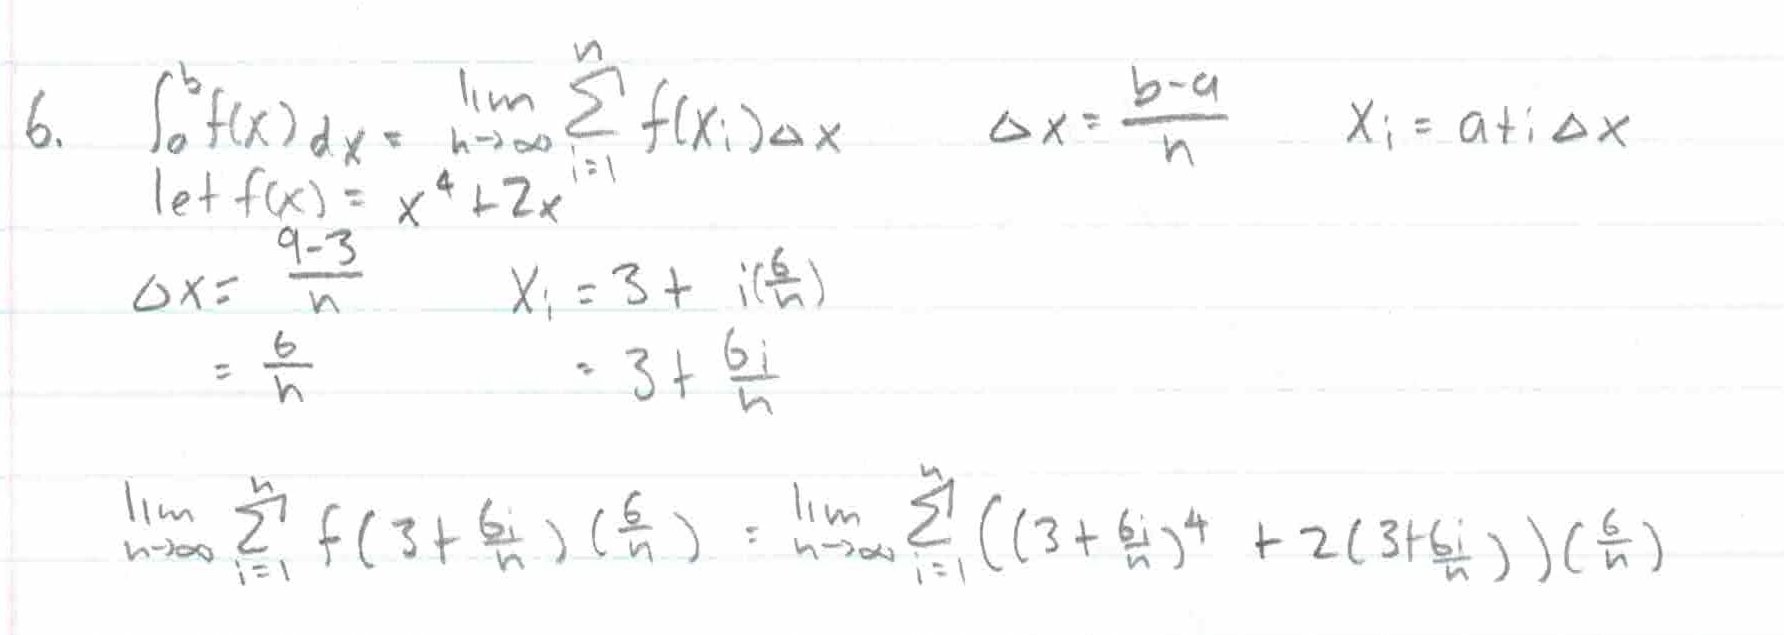 6. ∫₀ᵇ f(x) dx = lim n→∞ Σ i=1 n f(xᵢ)△x △x = b-a/n xᵢ = a+i△x
let f(x) = x⁴+2x
△x = 9-3/n xᵢ = 3 + i(6/n)
= 6/n = 3 + 6i/n
lim n→∞ Σ i=1 n f(3 + 6i/n)(6/n) = lim n→∞ Σ i=1 n ((3 + 6i/n)⁴ + 2(3+6i/n))(6/n)